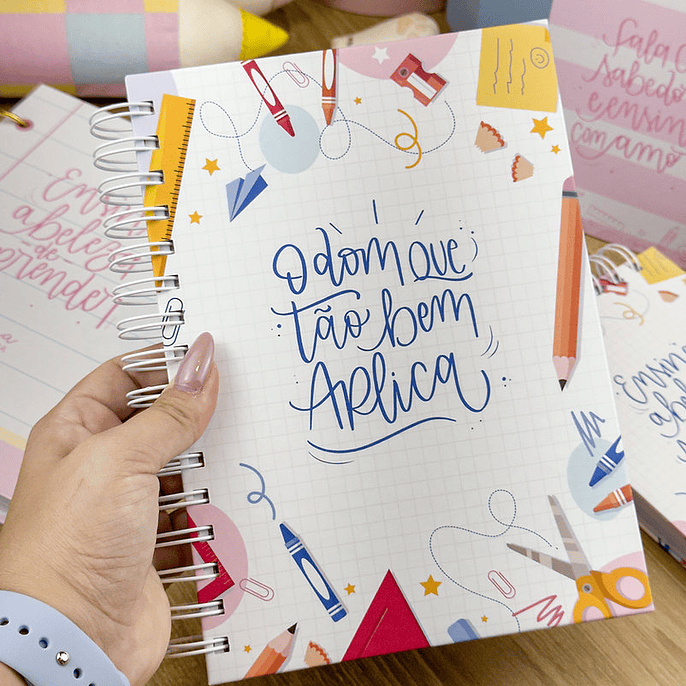 O dom que
tão bem
Aplica
Ensina
a beleza
de
aprender
Fala C
sabedo
e ensin
com amo
Ensina
a bele